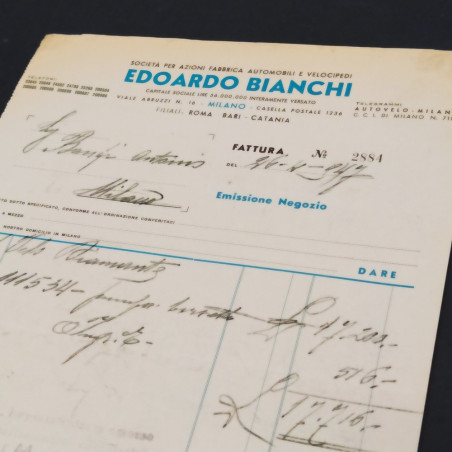 SOCIETÀ PER AZIONI FABBRICA AUTOMOBILI E VELOCIPEDI
EDOARDO BIANCHI
CAPITALE SOCIALE LIRE 56.000.000 INTERAMENTE VERSATO
VIALE ABRUZZI N. 16 - MILANO - CASELLA POSTALE 1236
FILIALI: ROMA BARI - CATANIA
TELEFONI
TELEGRAMMI
AUTOVELO - MILAN
C. C. I. DI MILANO N. 711
FATTURA № 2884
DEL 26-X-947
Sig Banfi Antonio
Milano
Emissione Negozio
TO NOTO SPECIFICATO, CONFORME ALL'ORDINAZIONE CONFERITACI
A MEZZO
NOSTRO DOMICILIO IN MILANO
DARE
111534 £ 17.200.-
516.-
£ 17.716.-